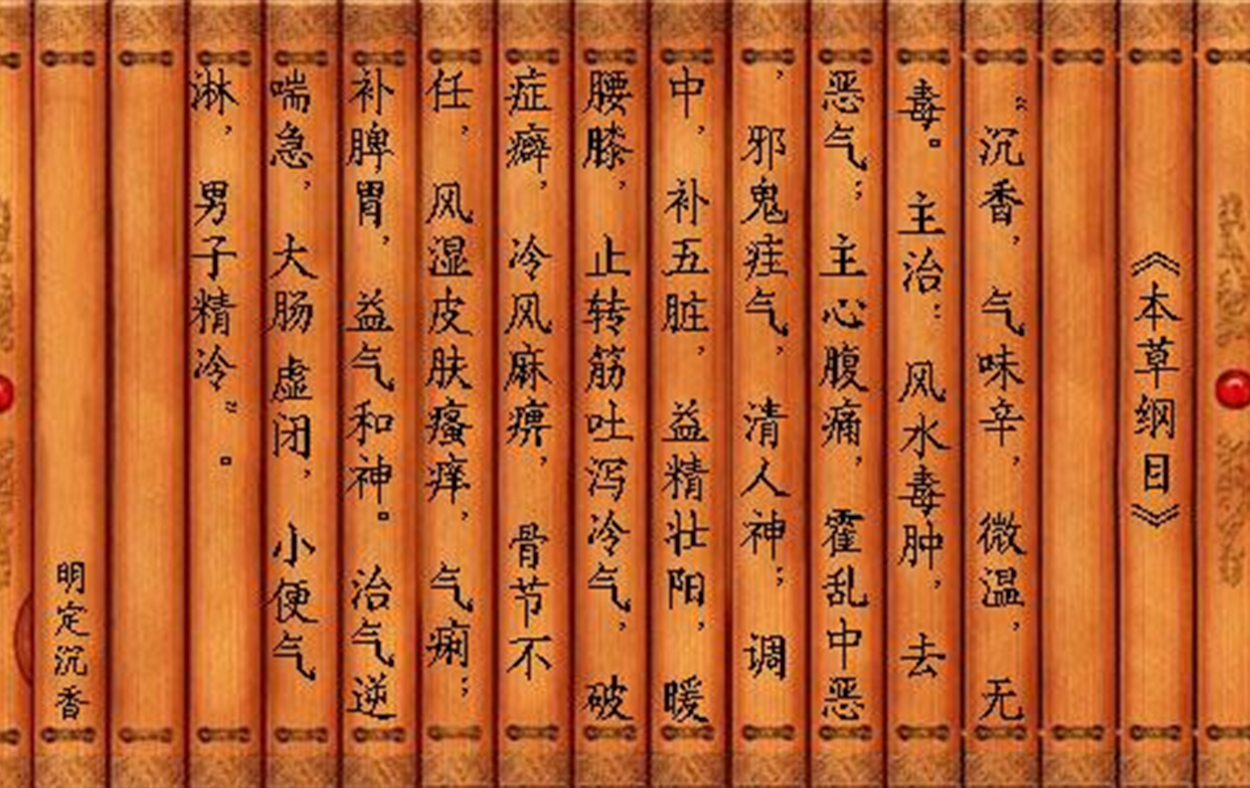 《本草纲目》
“沉香，气味辛，微温，无
毒。主治：风水毒肿，去
恶气；主心腹痛，霍乱中恶
，邪鬼疰气，清人神；调
中，补五脏，益精壮阳，暖
腰膝，止转筋吐泻冷气，破
症癖，冷风麻痹，骨节不
任，风湿皮肤瘙痒，气痢；
补脾胃，益气和神。治气逆
喘急，大肠虚闭，小便气
淋，男子精冷”。
明定沉香